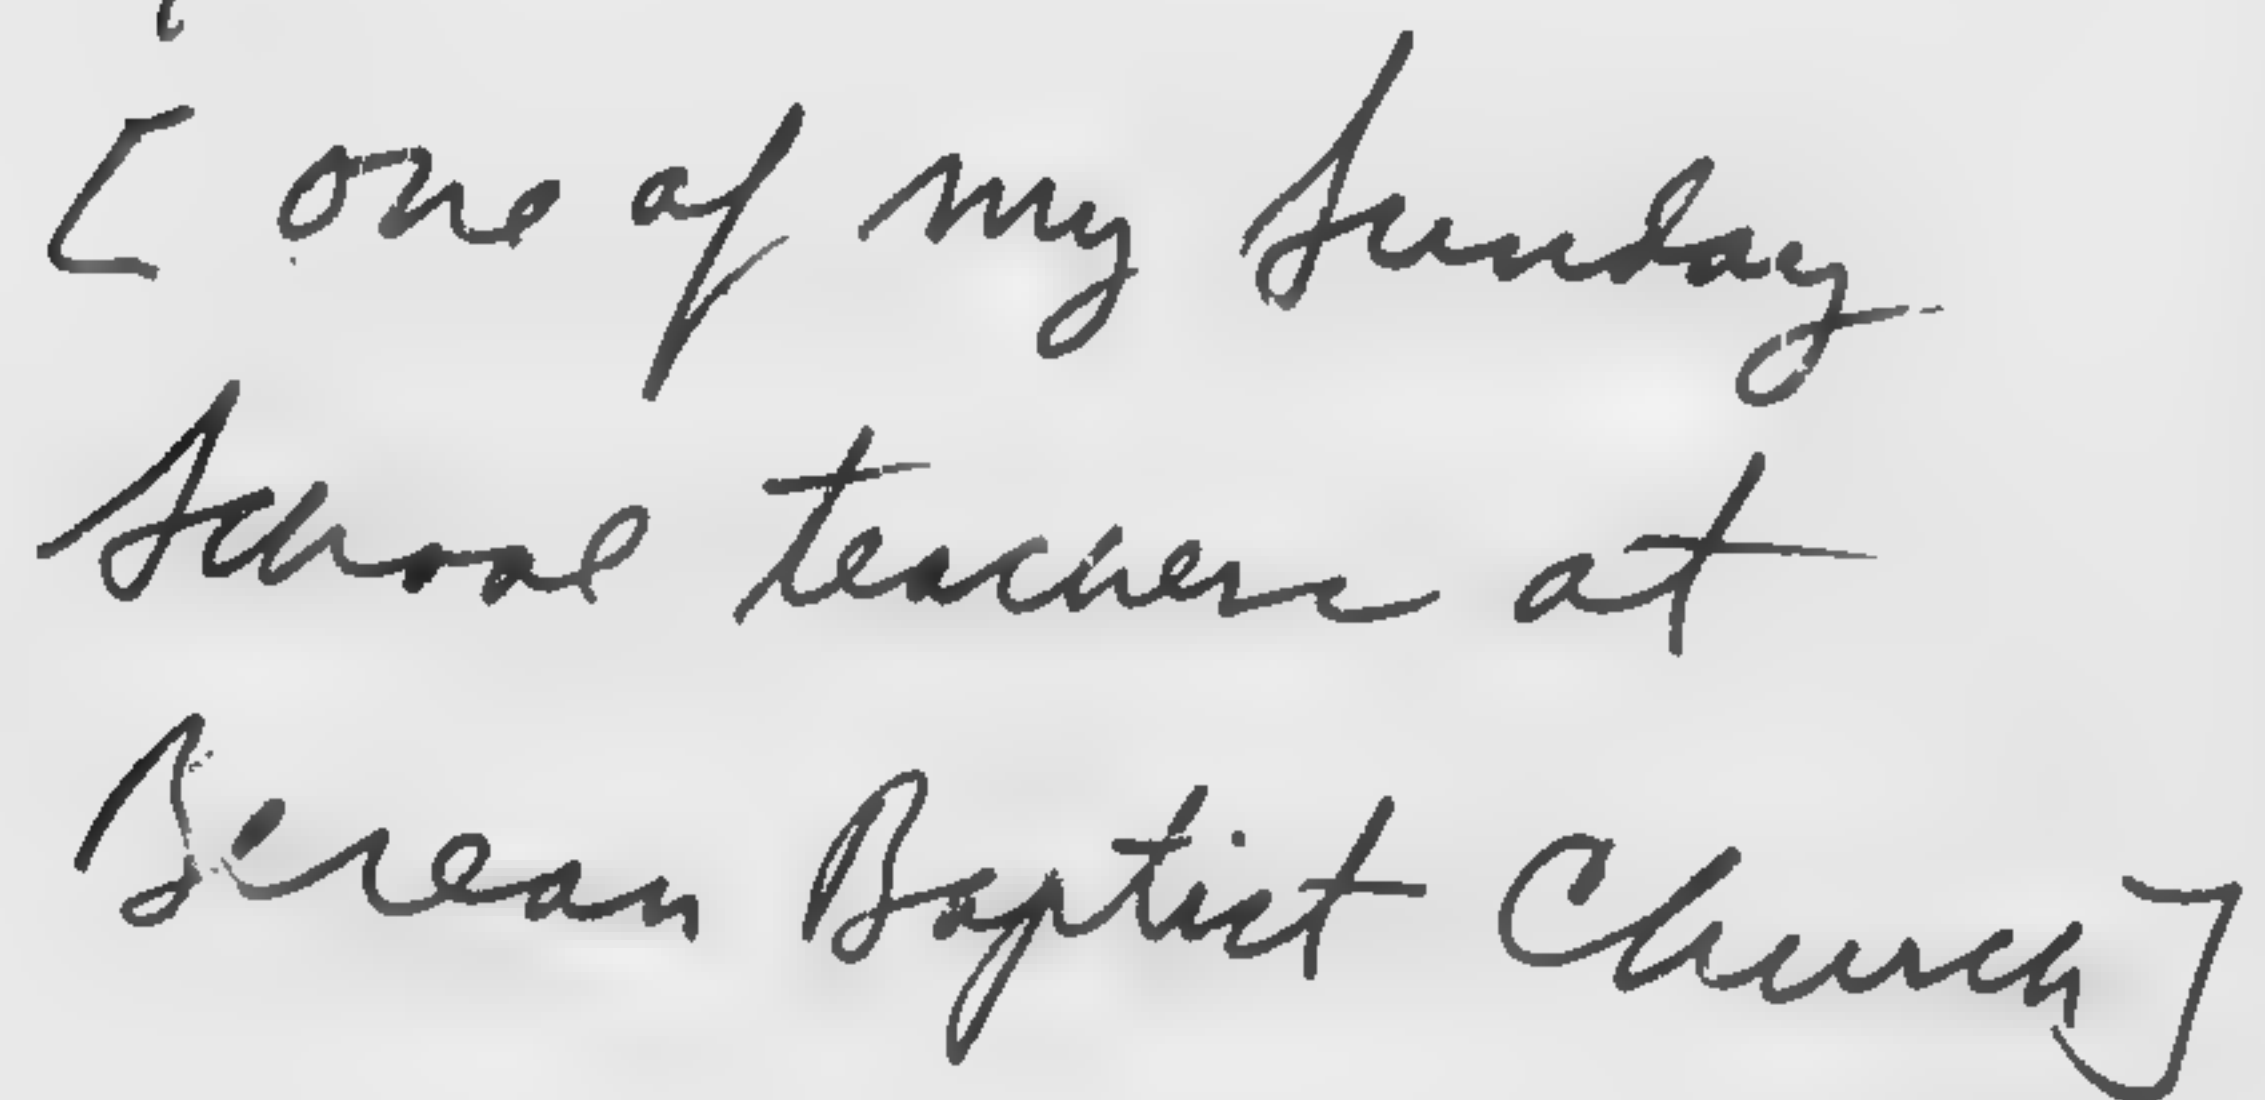 [ one of my Sunday
School teachers at
Berean Baptist Church]